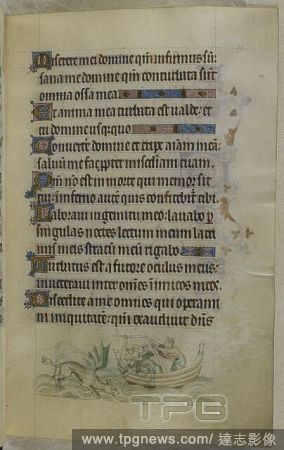 Miserere mei domine qm̄ infirmus sū:
sana me domine qm̄ conturbata sūt
omnia ossa mea
Et anima mea turbata est valde: et
tu domine usq̄quo
Convertere domine et eripe aīam meā:
salvū me fac ꝓpter misc̄diam tuam.
Qm̄ nō est in morte qui memor sit
tui: in inferno autē quis confitebit᷑ tibi
Laboravi in gemitu meo: lavabo ꝑ
singulas noctes lectum meum lacri
mis meis stratū meū rigabo
Turbatus est a furore oculus meus:
inveteravi inter om̄es inimicos meos
Discedite a me omnes qui operami
ni iniquitatē: qm̄ exaudivit dn̄s
TPG
www.tpgnews.com/ 達志影像